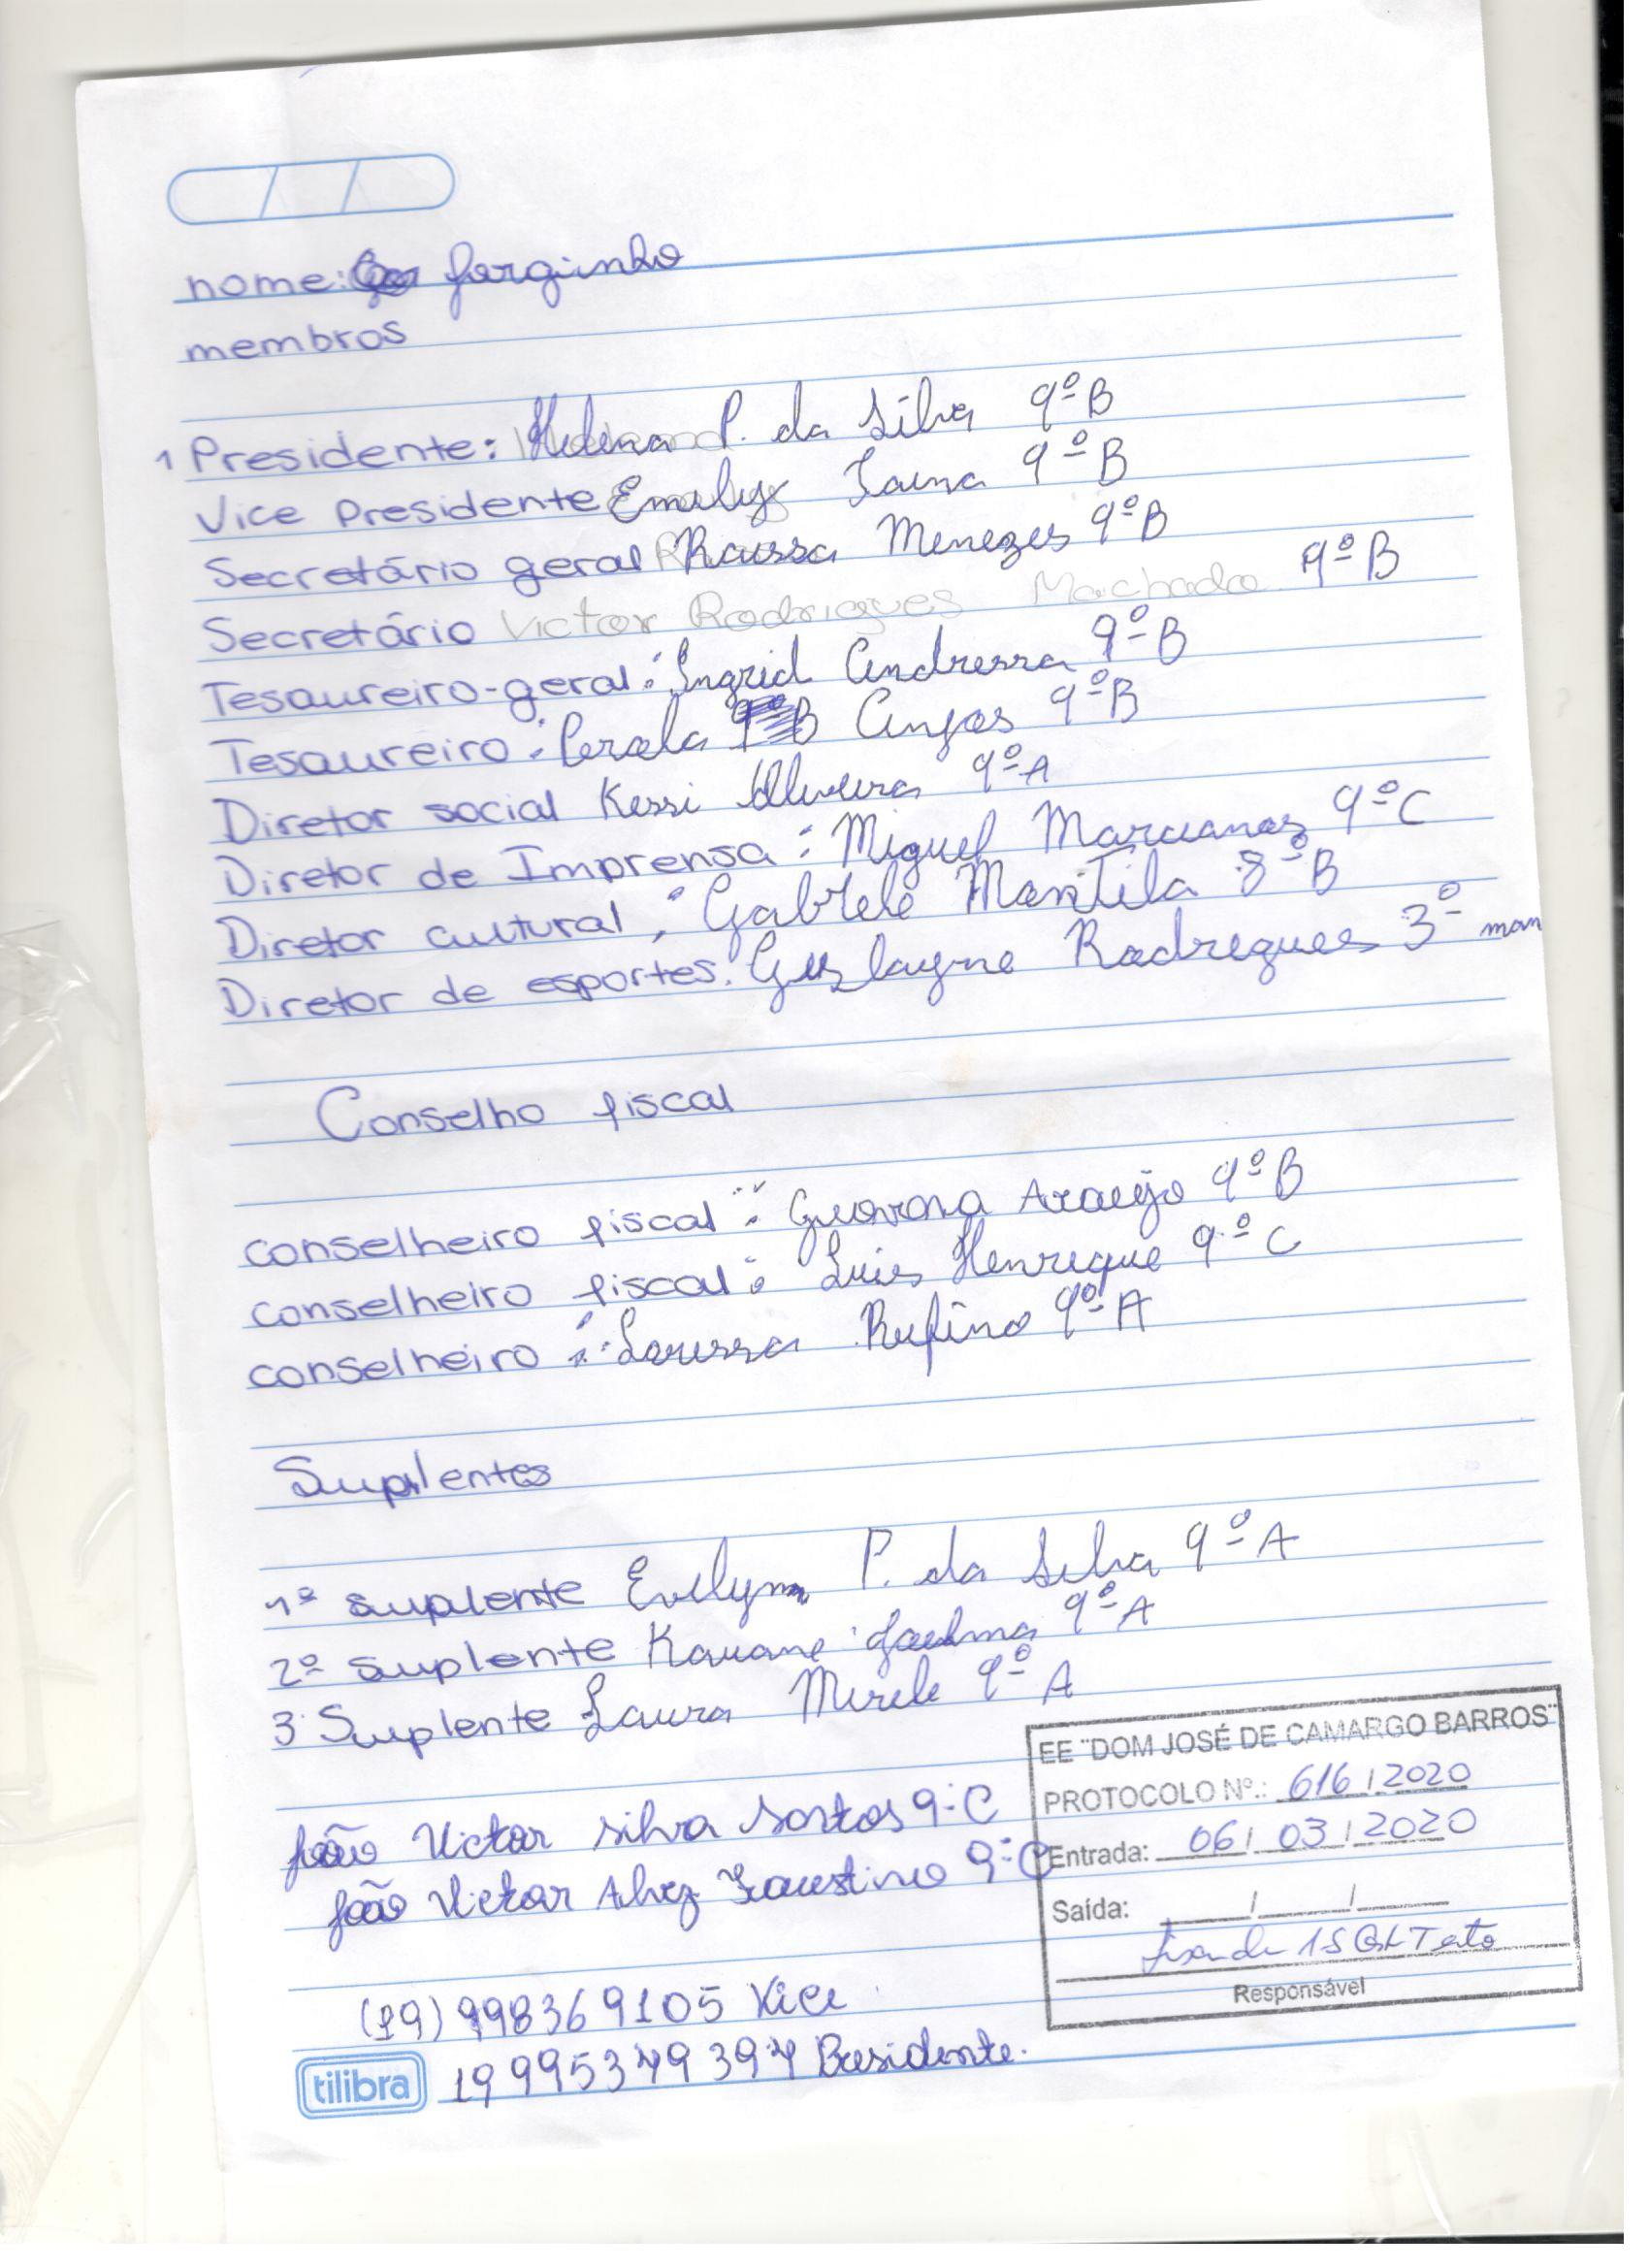 nome: forginho
membros
1 Presidente: Helena P. da Silva 9º B
Vice Presidente Emily Taina 9º B
Secretário geral Raissa Menezes 9º B
Secretário Victor Rodrigues Machado 9º B
Tesaureiro-geral: Ingrid Andressa 9º B
Tesaureiro: Perola Anjos 9º B
Diretor social Kessi Oliveira 9º A
Diretor de Imprensa: Miguel 9º C
Diretor cultural: Gabriele Mantila 8º B
Diretor de esportes. Rodrigues 3º man
Conselho fiscal
conselheiro fiscal: Giovana Araujo 9º B
conselheiro fiscal: Luis Henrique 9º C
conselheiro: Larissa Rufino 9º A
Suplentes
1º suplente Evelyn P. da Silva 9º A
2º suplente Kauane 9º A
3 Suplente Laura Mirele 9º A
João Victor silva santos 9º C
João Victor Alvez Faustino 9º C
EE "DOM JOSÉ DE CAMARGO BARROS"
PROTOCOLO Nº.: 616/2020
Entrada: 06/03/2020
Saída: / /
Responsável
(19) 998369105 Vice
tilibra 19 995349394 Presidente.